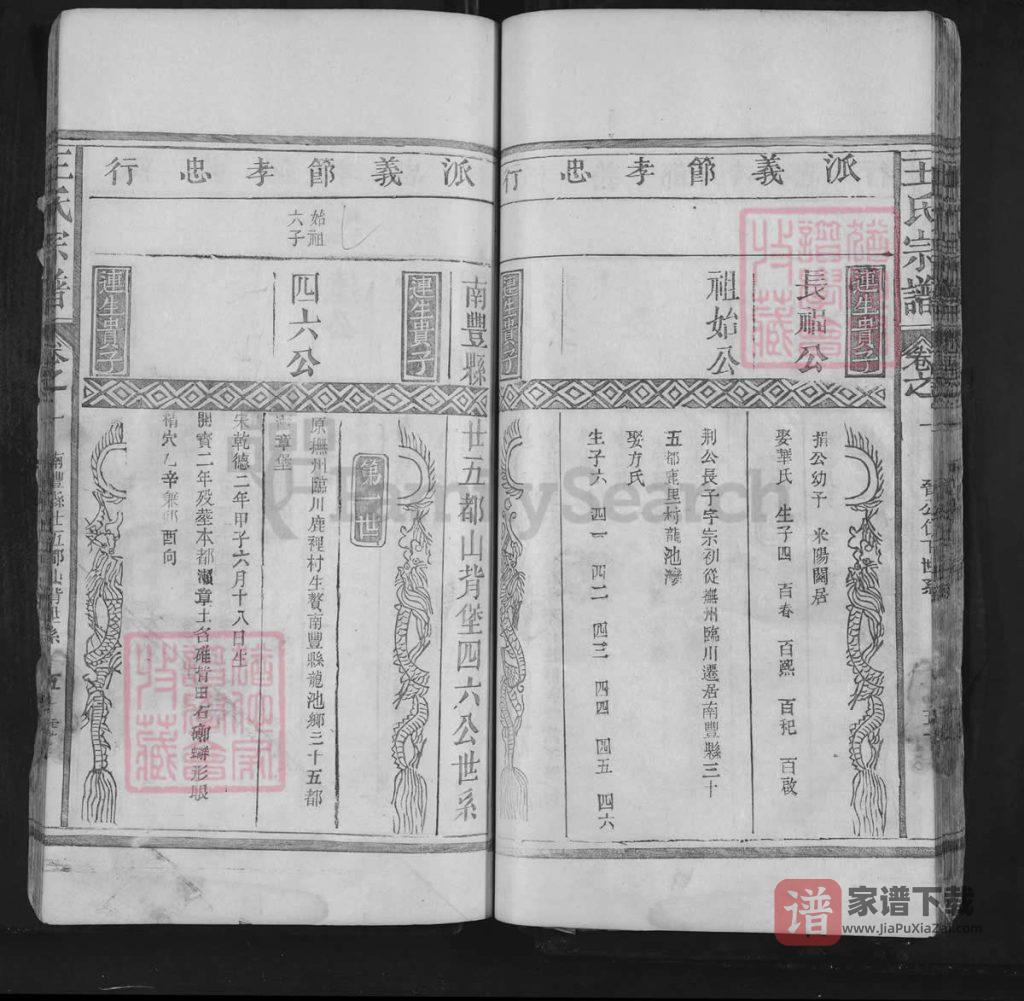 王氏宗譜
卷之一
派義節孝忠行
連生貴子
長耑公
捐公幼子 米陽闕居
娶華氏 生子四 百春 百熙 百祀 百啟
祖始公
荆公長子字宗初從撫州臨川遷居南豐縣三十
五都鹿里村龍池漈
娶方氏
生子六 四一 四二 四三 四四 四五 四六
連生貴子
派義節孝忠行
南豐縣廿五都山背堡四六公世系
連生貴子
第一世
始祖
六子
四六公
原撫州臨川鹿裡村生贅南豐縣龍池鄉三十五都
章堡
宋乾德二年甲子六月十八日生
開寶二年歿塟本都瀨章土名碓背田石
形眼
穴 辛乘 酉向
連生貴子
王氏宗譜
卷之一
家谱下载
www.JiaPuXiaZai.com
FamilySearch